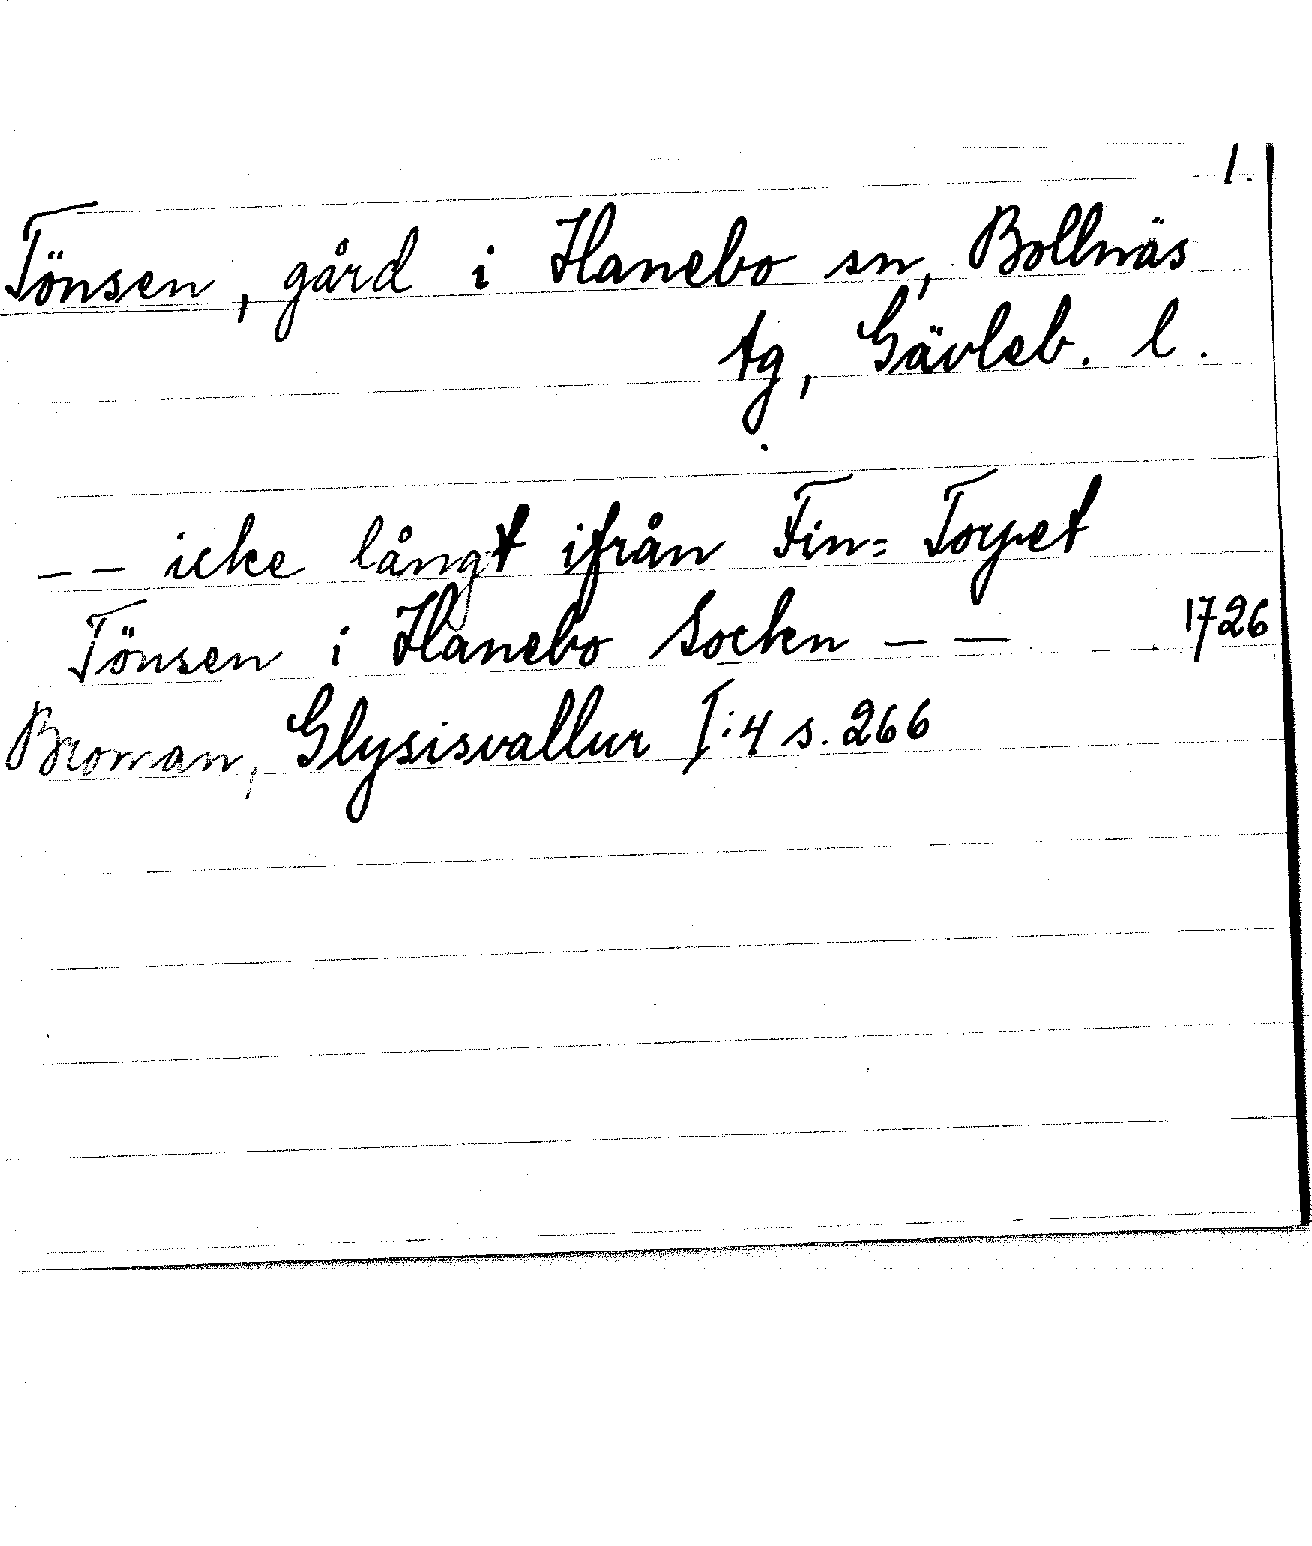 1.
Tönsen, gård i Hanebo sn, Bollnäs
tg, Gävleb. l.
-- icke långt ifrån Fin= Torpet
Tönsen i Hanebo Sockn -- 1726
Broman, Glysisvallur I:4 s. 266